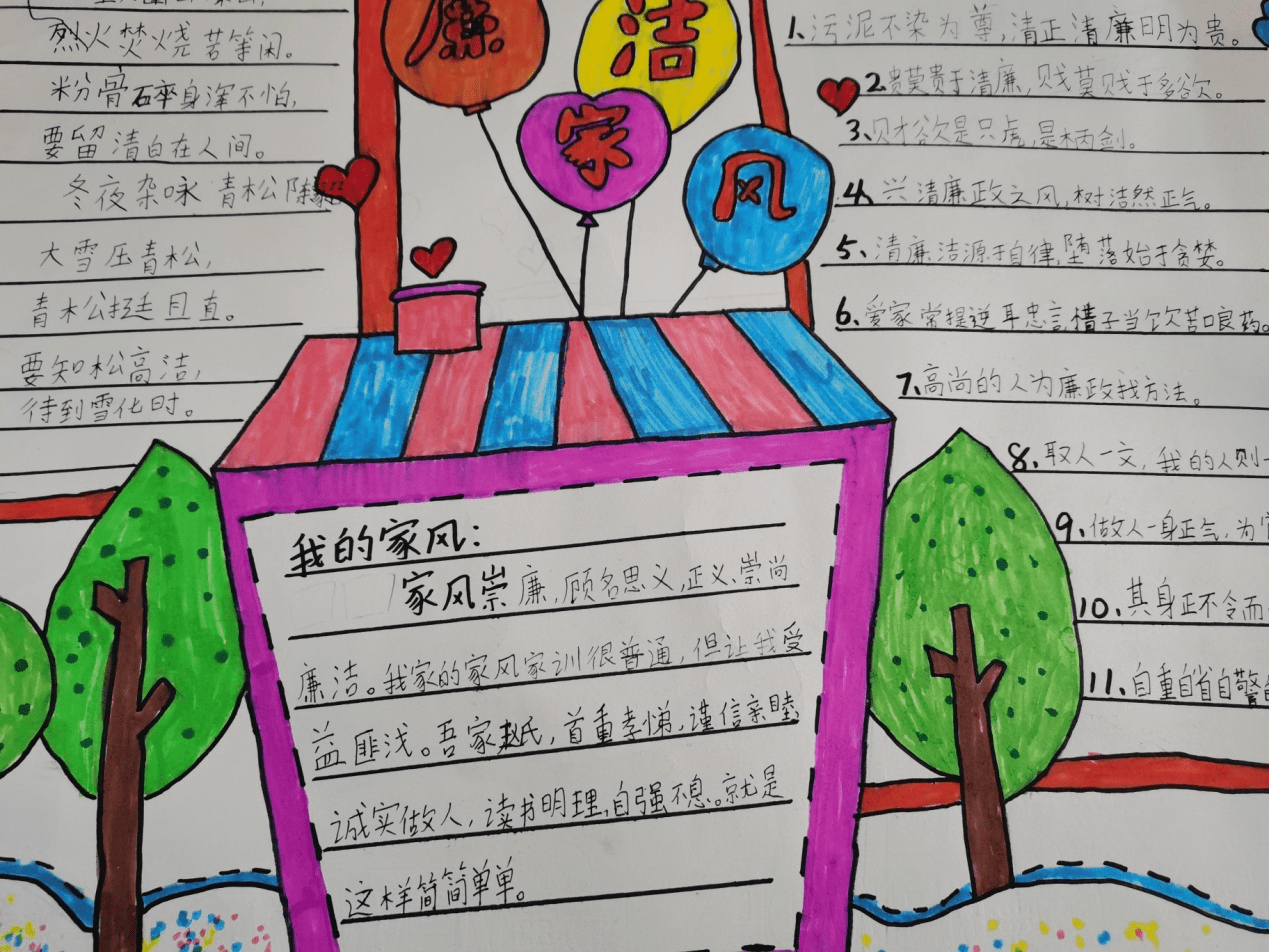 烈火焚烧若等闲。
粉骨碎身浑不怕,
要留清白在人间。
冬夜杂咏 青松 陈毅
大雪压青松,
青松挺且直。
要知松高洁,
待到雪化时。
廉洁
家风
1、污泥不染为尊,清正清廉明为贵。
2、贵莫贵于清廉,贱莫贱于多欲。
3、财欲是只虎,是柄剑。
4、兴清廉政之风,树洁然正气。
5、清廉洁源于自律,堕落始于贪婪。
6、爱家常提逆耳忠言,惜子当饮苦口良药。
7、高尚的人为廉政找方法。
8、取人一文,我的人则一
9、做人一身正气,为官
10、其身正不令而
11、自重自省自警自
我的家风:
家风崇廉,顾名思义,正义、崇尚
廉洁。我家的家风家训很普通,但让我受
益匪浅。吾家赵氏,首重孝悌,谨信亲睦,
诚实做人,读书明理,自强不息。就是
这样简简单单。